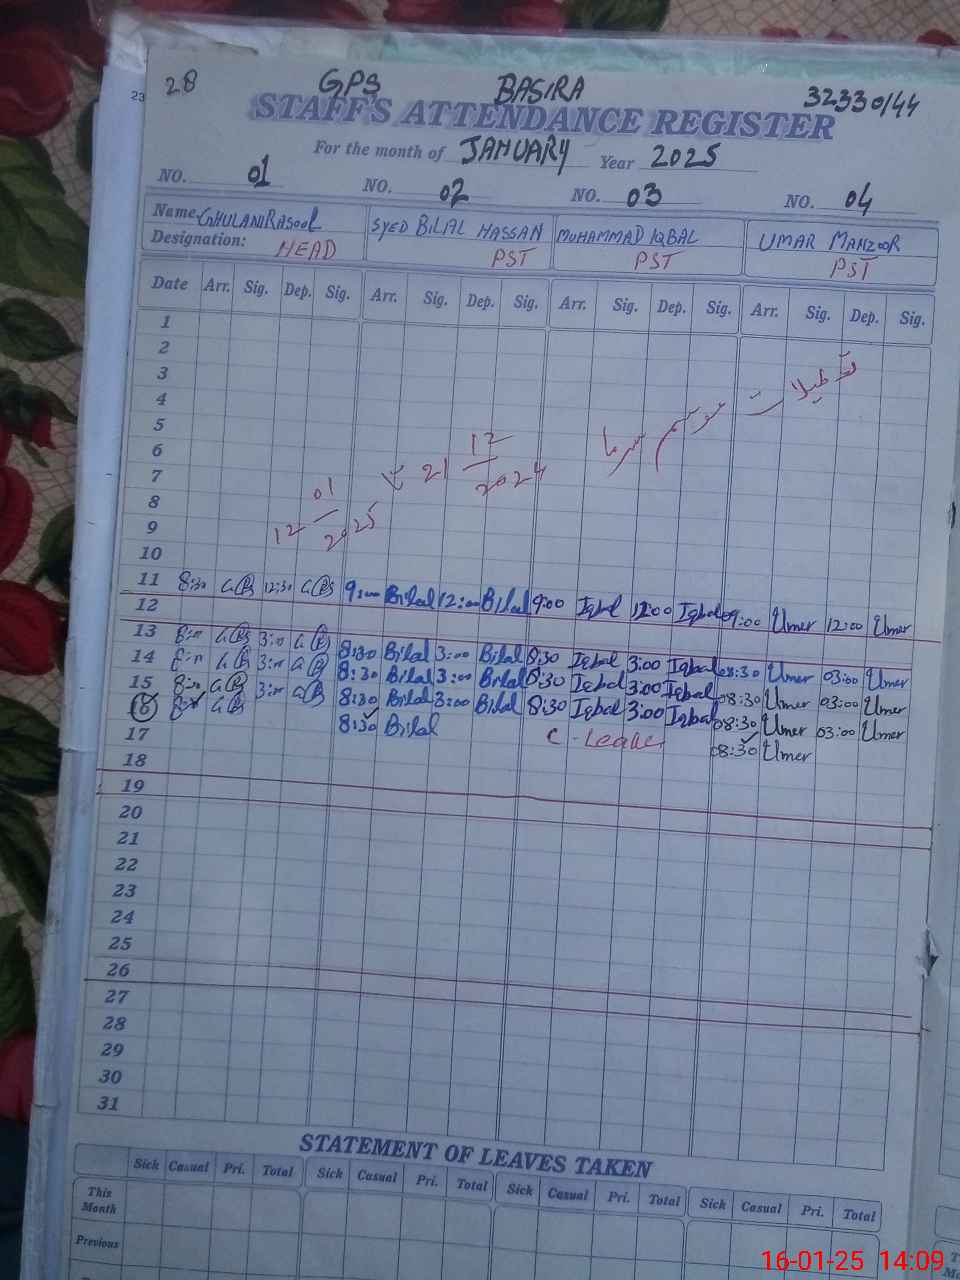 28 GPS BASIRA 32330144
23
STAFF'S ATTENDANCE REGISTER
For the month of JANUARY Year 2025
NO. 01 NO. 02 NO. 03 NO. 04
Name GHULAM RASOOL SYED BILAL HASSAN MUHAMMAD IQBAL UMAR MANZOOR
Designation: HEAD PST PST PST
Date Arr. Sig. Dep. Sig. Arr. Sig. Dep. Sig. Arr. Sig. Dep. Sig. Arr. Sig. Dep. Sig.
1
2
3
4
تعطیلات موسم سرما
5
6
7
21 12/2024 تا 12 01/2025
8
9
10
11 8:30 12:30 9:00 Bilal 12:00 Bilal 9:00 Iqbal 12:00 Iqbal 09:00 Umer 12:00 Umer
12
13 8:30 3:00 8:30 Bilal 3:00 Bilal 8:30 Iqbal 3:00 Iqbal 08:30 Umer 03:00 Umer
14 8:30 3:00 8:30 Bilal 3:00 Bilal 8:30 Iqbal 3:00 Iqbal 08:30 Umer 03:00 Umer
15 8:30 3:00 8:30 Bilal 3:00 Bilal 8:30 Iqbal 3:00 Iqbal 08:30 Umer 03:00 Umer
16 8:30 Bilal C-Leave 08:30 Umer
17
18
19
20
21
22
23
24
25
26
27
28
29
30
31
STATEMENT OF LEAVES TAKEN
Sick Casual Pri. Total Sick Casual Pri. Total Sick Casual Pri. Total Sick Casual Pri. Total
This Month
Previous
16-01-25 14:09